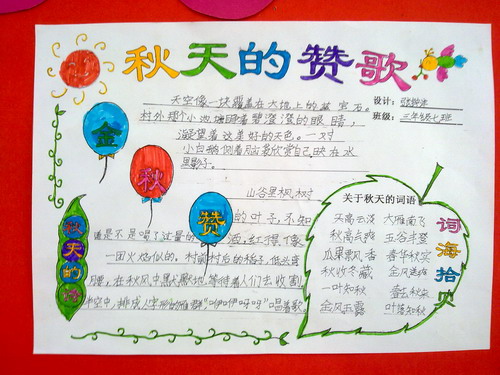 秋天的赞歌
设计：
班级：三年级七班
天空像一块覆盖在大地上的蓝宝石。
村外那个小池塘睁着碧澄澄的眼睛，
凝望着这美好的天色。一对
小白鹅侧着脑袋欣赏自己映在水
里影子。
山谷里枫树
的叶子，不知
谁是不是喝了过量的酒，红得像
一团火焰似的。村前村后的稻子，低头弯
腰，在秋风中默默地等待着人们去收割
半空中，排成人字形的雁群"咿咿呀呀"唱着歌。
金
秋
赞
秋天的诗
关于秋天的词语
天高云淡 大雁南飞
秋高气爽 五谷丰登
瓜果飘香 春华秋实
秋收冬藏 金风送爽
一叶知秋
金风玉露 叶落知秋
词海拾贝